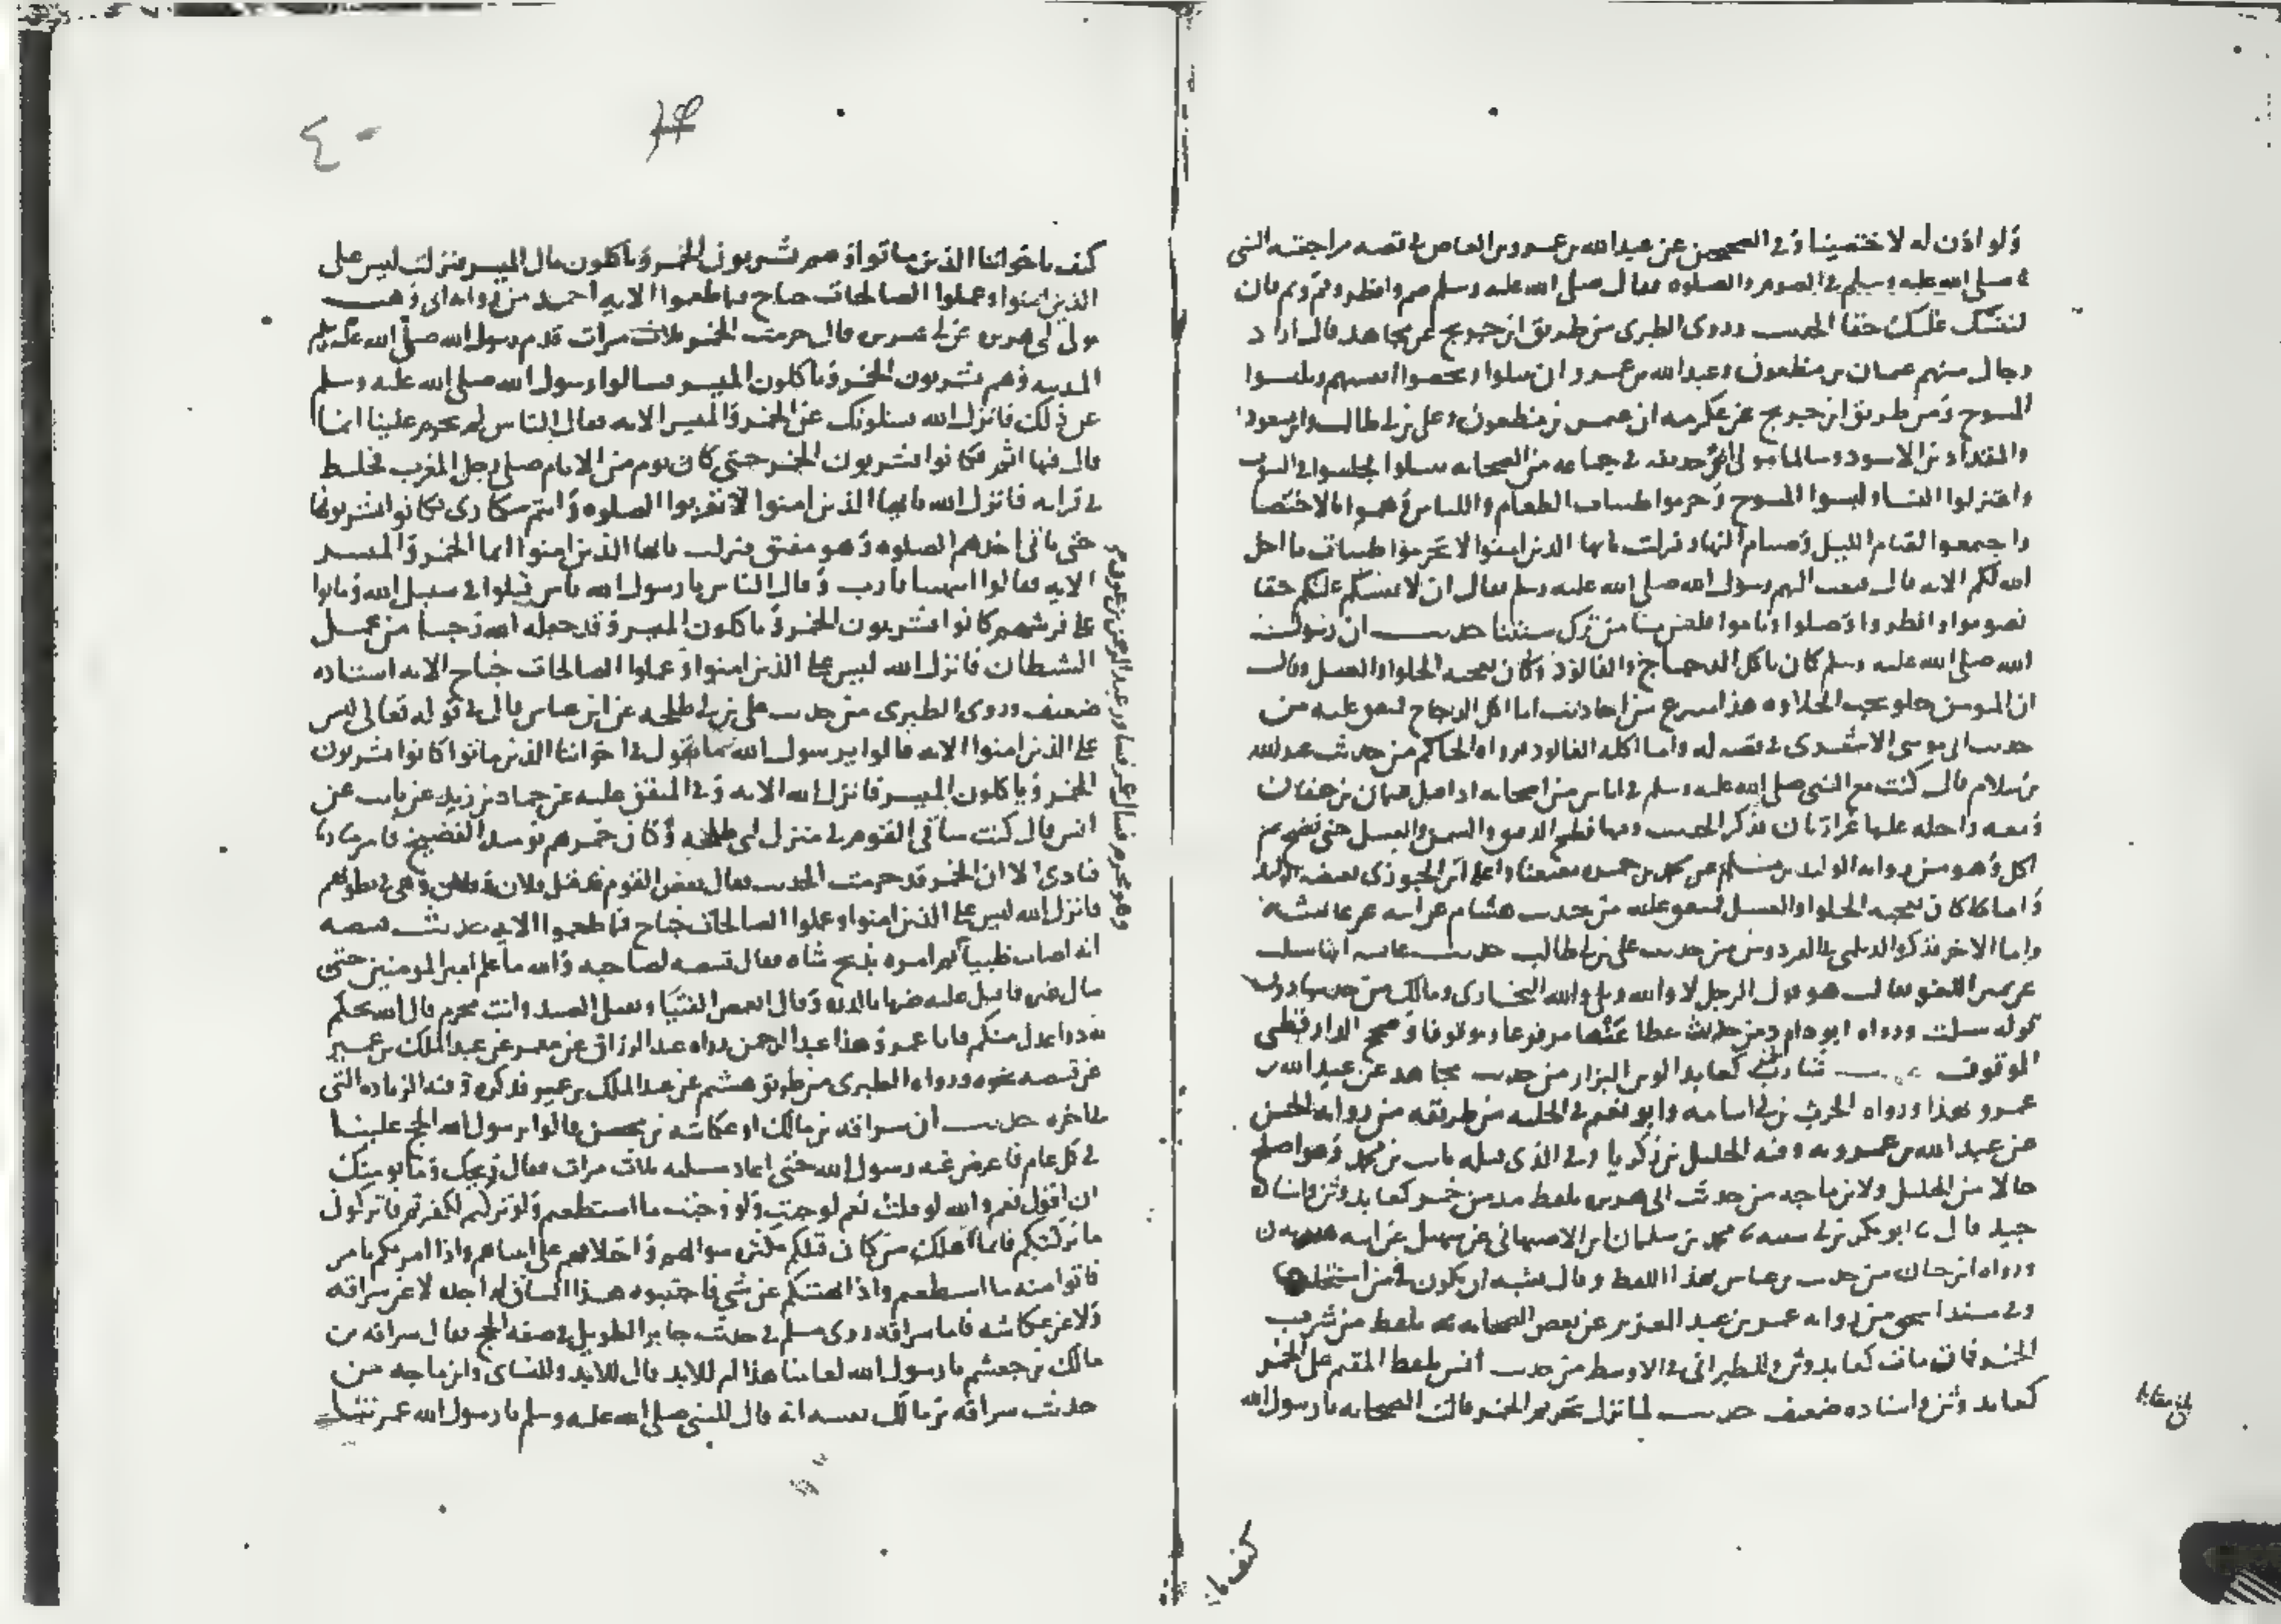 ولو اذن له لاختصينا وفي الصحيحين عن عبدالله بن عمرو بن العاص في قصه مراجعته النبي
صلى الله عليه وسلم في الصوم والصلوه فقال صلى الله عليه وسلم صم وافطر وقم ونم فان
لنفسك عليك حقا الحديث وروى الطبري من طريق ابن جريج عن مجاهد قال اراد
رجال منهم عثمان بن مظعون وعبد الله بن عمرو ان يتبتلوا ويخصوا انفسهم ويلبسوا
المسوح ومن طريق ابن جريج عن عكرمه ان عثمن بن مظعون وعلي بن ابي طالب وابن مسعود
والمقداد بن الاسود وسالما مولى ابي حذيفه في جماعه من الصحابه تبتلوا فجلسوا في البيوت
واعتزلوا النسا ولبسوا المسوح وحرموا طيبات الطعام واللباس وهموا بالاختصا
واجمعوا لقيام الليل وصيام النهار فنزلت يايها الذين امنوا لا تحرموا طيبات ما احل
الله لكم الايه قال فبعث اليهم رسول الله صلى الله عليه وسلم فقال ان لانفسكم عليكم حقا
فصوموا وافطروا وصلوا وناموا فليس منا من ترك سنتنا حديث ان رسول
الله صلى الله عليه وسلم كان ياكل الدجاج والفالوذ وكان يعجبه الحلوا والعسل وقال
ان المومن حلو يحب الحلاوه هذا منتزع من احاديث اما اكل الدجاج فمتفق عليه من
حديث ابي موسى الاشعري في قصه له واما اكله الفالوذ فرواه الحاكم من حديث عبد الله
بن سلام قال كنت مع النبي صلى الله عليه وسلم في اناس من اصحابه اذ اقبل عثمان بن عفان
ومعه راحله عليها غرارتان فذكر الحديث وفيها فطبخ الدقيق والسمن والعسل حتى نضج ثم
اكل وهو من روايه الوليد بن مسلم عن محمد بن حمزه واعله ابن الجوزي
واما كان يعجبه الحلوا والعسل فمتفق عليه من حديث هشام عن ابيه عن عائشه
واما الاخر فذكره الديلمي في الفردوس من حديث علي بن ابي طالب حديث عائشه انها سئلت
عن يمين اللغو فقالت هو قول الرجل لا والله وبلى والله البخاري ومالك من حديث عروه
ورواه ابو داود من حديث عطا عنها مرفوعا وموقوفا وصحح الدارقطني
الموقوف حديث شارب الخمر كعابد الوثن البزار من حديث مجاهد عن عبد الله بن
عمرو بهذا ورواه الحرث بن ابي اسامه وابو نعيم في الحليه من طريقه من روايه الحسن
عن عبد الله بن عمرو به وفيه الخليل بن زكريا وفي الذي قبله ثابت بن محمد وهو اصلح
حالا من الخليل ولابن ماجه من حديث ابي هريره بلفظ مدمن خمر كعابد وثن واسناده
جيد قال ابو بكر بن ابي شيبه محمد بن سليمان بن الاصبهاني عن سهيل عن ابيه
ورواه ابن حبان من حديث بن عباس بهذا اللفظ وقال يشبه ان يكون فيمن استحلها
وفي مسند اسحق من روايه عمر بن عبد العزيز عن بعض الصحابه بلفظ من شرب
الخمر فمات مات كعابد وثن وللطبراني في الاوسط من حديث انس بلفظ المقيم على الخمر
كعابد وثن واسناده ضعيف حديث لما نزل تحريم الخمر قالت الصحابه يا رسول الله
كيف با
كيف باخواننا الذين ماتوا وهم يشربون الخمر وياكلون مال الميسر فنزلت ليس على
الذين امنوا وعملوا الصالحات جناح فيما طعموا الايه احمد من روايه ابي وهب
مولى ابي هريره عن ابي هريره قال حرمت الخمر ثلاث مرات قدم رسول الله صلى الله عليه وسلم
المدينه وهم يشربون الخمر وياكلون الميسر فسالوا رسول الله صلى الله عليه وسلم
عن ذلك فانزل الله يسئلونك عن الخمر والميسر الايه فقال الناس لم يحرم علينا انما
قال فيها اثم فكانوا يشربون الخمر حتى كان يوم من الايام صلى رجل المغرب فخلط
في قرايه فانزل الله يايها الذين امنوا لا تقربوا الصلوه وانتم سكارى فكانوا يشربونها
حتى ياتي احدهم الصلوه وهو مفيق فنزلت يايها الذين امنوا انما الخمر والميسر
الايه فقالوا انتهينا يا رب وقال الناس يا رسول الله ناس قتلوا في سبيل الله وماتوا
على فرشهم كانوا يشربون الخمر وياكلون الميسر وقد جعله الله رجسا من عمل
الشيطان فانزل الله ليس على الذين امنوا وعملوا الصالحات جناح الايه اسناده
ضعيف وروى الطبري من حديث علي بن ابي طلحه عن ابن عباس قال في قوله تعالى ليس
على الذين امنوا الايه قالوا يرسول الله ما تقول في اخواننا الذين ماتوا كانوا يشربون
الخمر وياكلون الميسر فانزل الله الايه وفي المتفق عليه عن حماد بن زيد عن ثابت عن
انس قال كنت ساقي القوم في منزل ابي طلحه وكان خمرهم يومئذ الفضيخ فامر مناديا
فنادى الا ان الخمر قد حرمت الحديث فقال بعض القوم قد قتل فلان وفلان وهي في بطونهم
فانزل الله ليس على الذين امنوا وعملوا الصالحات جناح فيما طعموا الايه حديث قبيصه
انه اصاب ظبيا وهو محرم فسال عمر فشاور عبد الرحمن بن عوف ثم
امره بذبح شاه فقال قبيصه لصاحبه والله ما علم امير المومنين حتى
سال غيره فاقبل عليه ضربا بالدره وقال اتغمص الفتيا وتقتل الصيد وانت محرم قال الله يحكم
به ذوا عدل منكم فانا عمر وهذا عبد الرحمن رواه عبد الرزاق عن معمر عن عبد الملك بن عمير
عن قبيصه نحوه ورواه الطبري من طريق هشيم عن عبد الملك بن عمير فذكره وفيه الزياده التي
في اخره حديث ان سراقه بن مالك او عكاشه بن محصن قالوا يرسول الله الحج علينا
في كل عام فاعرض عنه رسول الله حتى اعاد مسئلته ثلاث مرات فقال ويحك وما يومنك
ان اقول نعم والله لو قلت نعم لوجبت ولو وجبت ما استطعتم ولو تركتم لكفرتم فاتركوني
ما تركتكم فانما اهلك من كان قبلكم كثره سوالهم واختلافهم على انبيائهم واذا امرتكم بامر
فاتوا منه ما استطعتم واذا نهيتكم عن شي فاجتنبوه هذا السياق لم اجده لا عن سراقه
ولا عن عكاشه فاما سراقه فروى مسلم في حديث جابر الطويل في صفه الحج فقال سراقه بن
مالك بن جعشم يا رسول الله لعامنا هذا ام للابد قال للابد وللنسائي وابن ماجه من
حديث سراقه بن مالك نفسه انه قال للنبي صلى الله عليه وسلم يا رسول الله عمرتنا